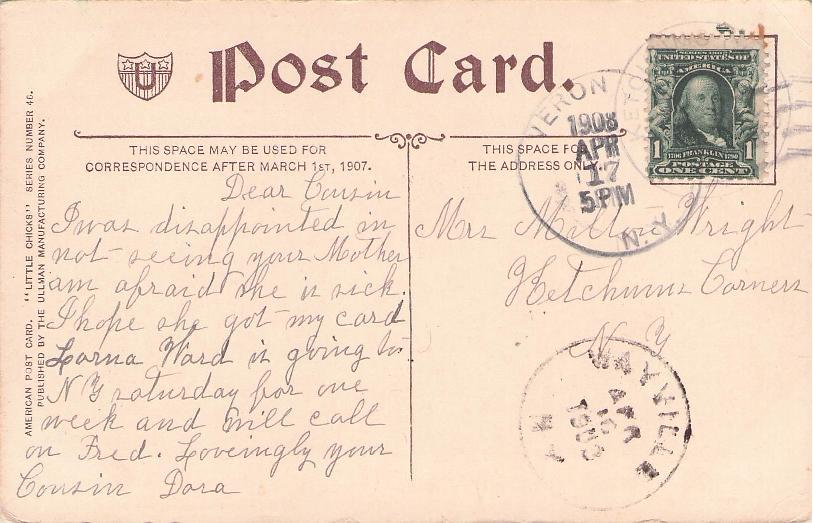 U
Post Card.
THIS SPACE MAY BE USED FOR
CORRESPONDENCE AFTER MARCH 1ST, 1907.
THIS SPACE FOR
THE ADDRESS ONLY
AMERICAN POST CARD. "LITTLE CHICKS" SERIES NUMBER 46.
PUBLISHED BY THE ULLMAN MANUFACTURING COMPANY.
Dear Cousin
I was disappointed in
not seeing your Mother
am afraid she is sick.
I hope she got my card
Lorna Ward is going to
N Y saturday for one
week and will call
on Fred. Loveingly your
Cousin Dora
Mrs Milton Wright
Ketchums Corners
N Y
1908
APR
17
5 PM
N.Y.
SERIES 1902
UNITED STATES OF
AMERICA
1706 FRANKLIN 1790
1 1
POSTAGE
ONE CENT
MAYVILLE
APR
16
1908